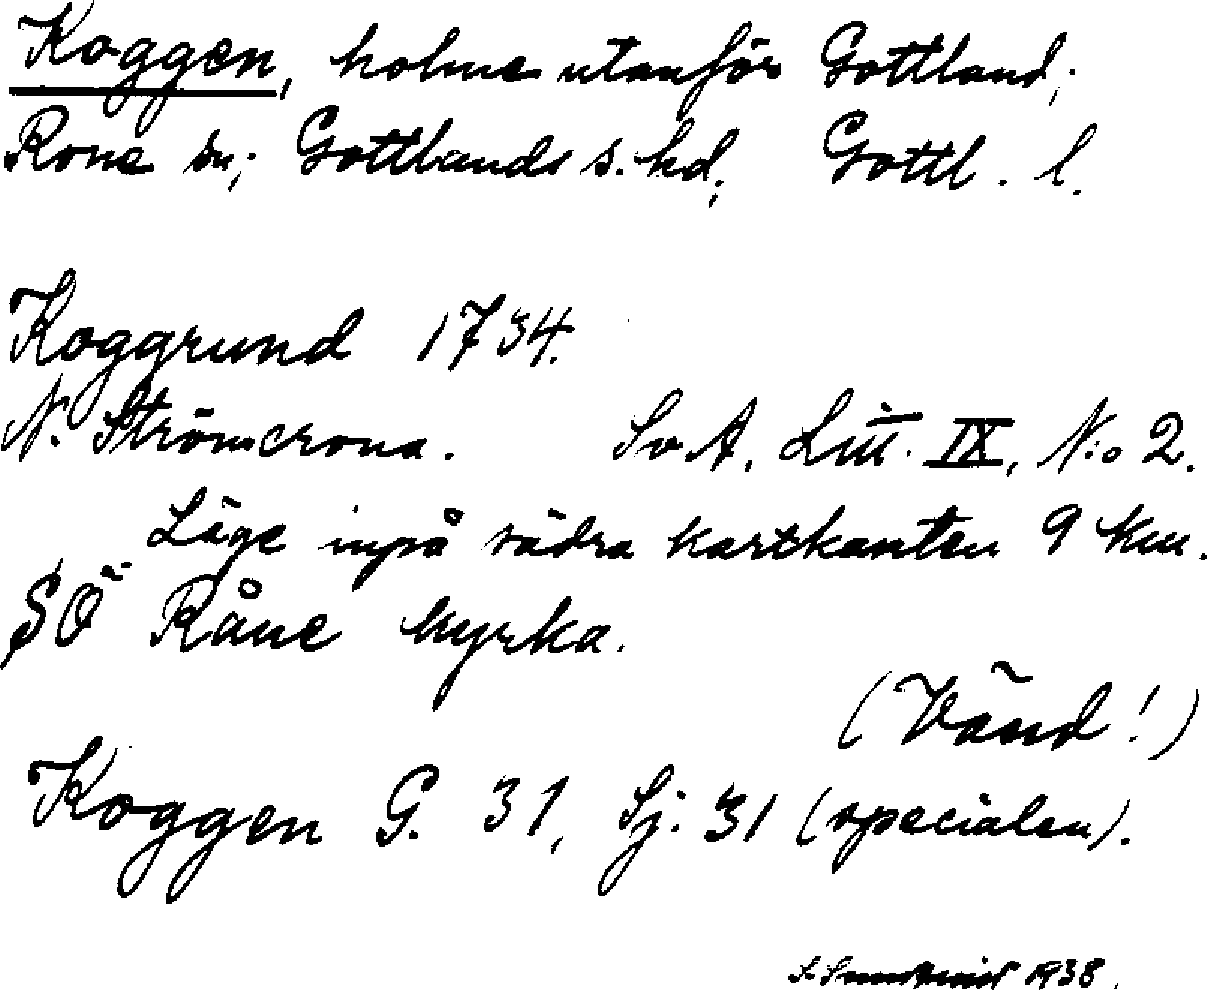 Koggen, holme utanför Gottland;
Rone sn; Gottlands s. hd; Gottl. l.
Koggrund 1734.
N. Strömcrona. Sv A, Litt. IX, N:o 2.
Läge inpå södra kartkanten 9 km.
SÖ Råne kyrka.
(Vänd!)
Koggen G. 31, Sj. 31 (specialen).
1938.